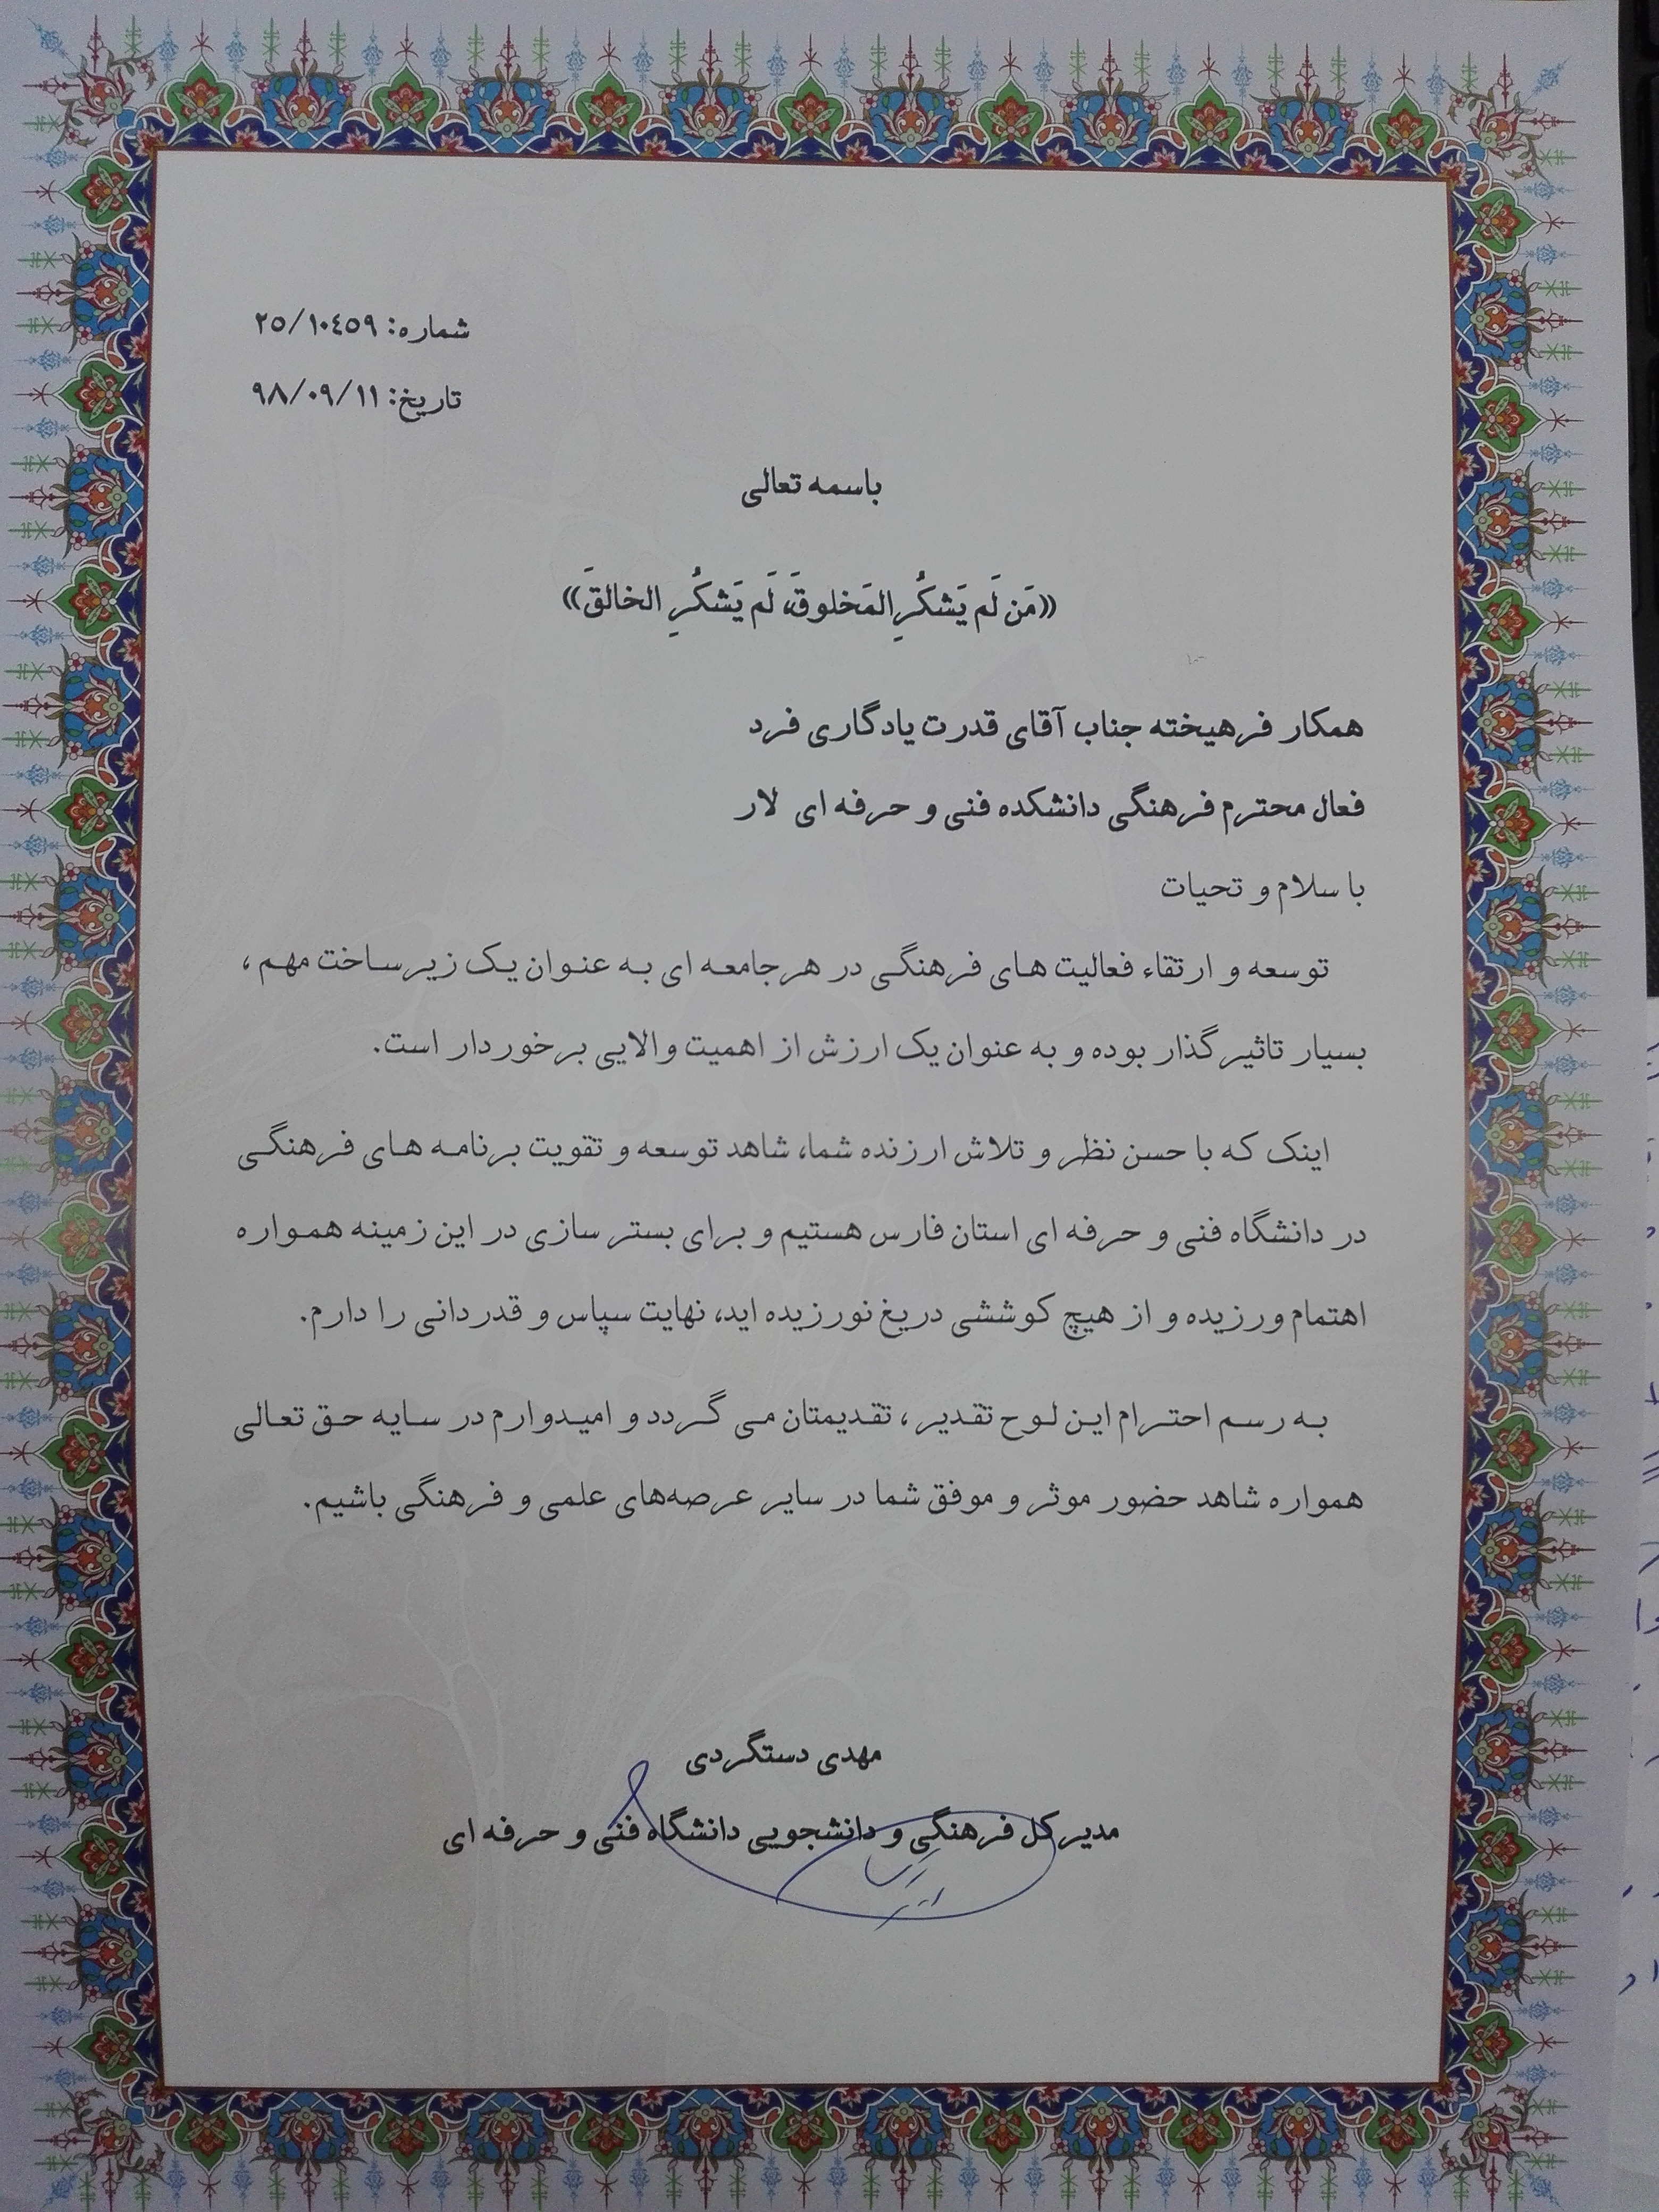 شماره: ۲۵/۱۰۴۵۹
تاریخ: ۹۸/۰۹/۱۱
باسمه تعالی
((مَن لَم یَشکُرِ المَخلوقَ، لَم یَشکُرِ الخالقَ))
همکار فرهیخته جناب آقای قدرت یادگاری فرد
فعال محترم فرهنگی دانشکده فنی و حرفه ای لار
با سلام و تحیات
توسعه و ارتقاء فعالیت های فرهنگی در هر جامعه ای به عنوان یک زیرساخت مهم ،
بسیار تاثیرگذار بوده و به عنوان یک ارزش از اهمیت والایی برخوردار است.
اینک که با حسن نظر و تلاش ارزنده شما، شاهد توسعه و تقویت برنامه های فرهنگی
در دانشگاه فنی و حرفه ای استان فارس هستیم و برای بستر سازی در این زمینه همواره
اهتمام ورزیده و از هیچ کوششی دریغ نورزیده اید، نهایت سپاس و قدردانی را دارم.
به رسم احترام این لوح تقدیر ، تقدیمتان می گردد و امیدوارم در سایه حق تعالی
همواره شاهد حضور موثر و موفق شما در سایر عرصه‌های علمی و فرهنگی باشیم.
مهدی دستگردی
مدیرکل فرهنگی و دانشجویی دانشگاه فنی و حرفه ای